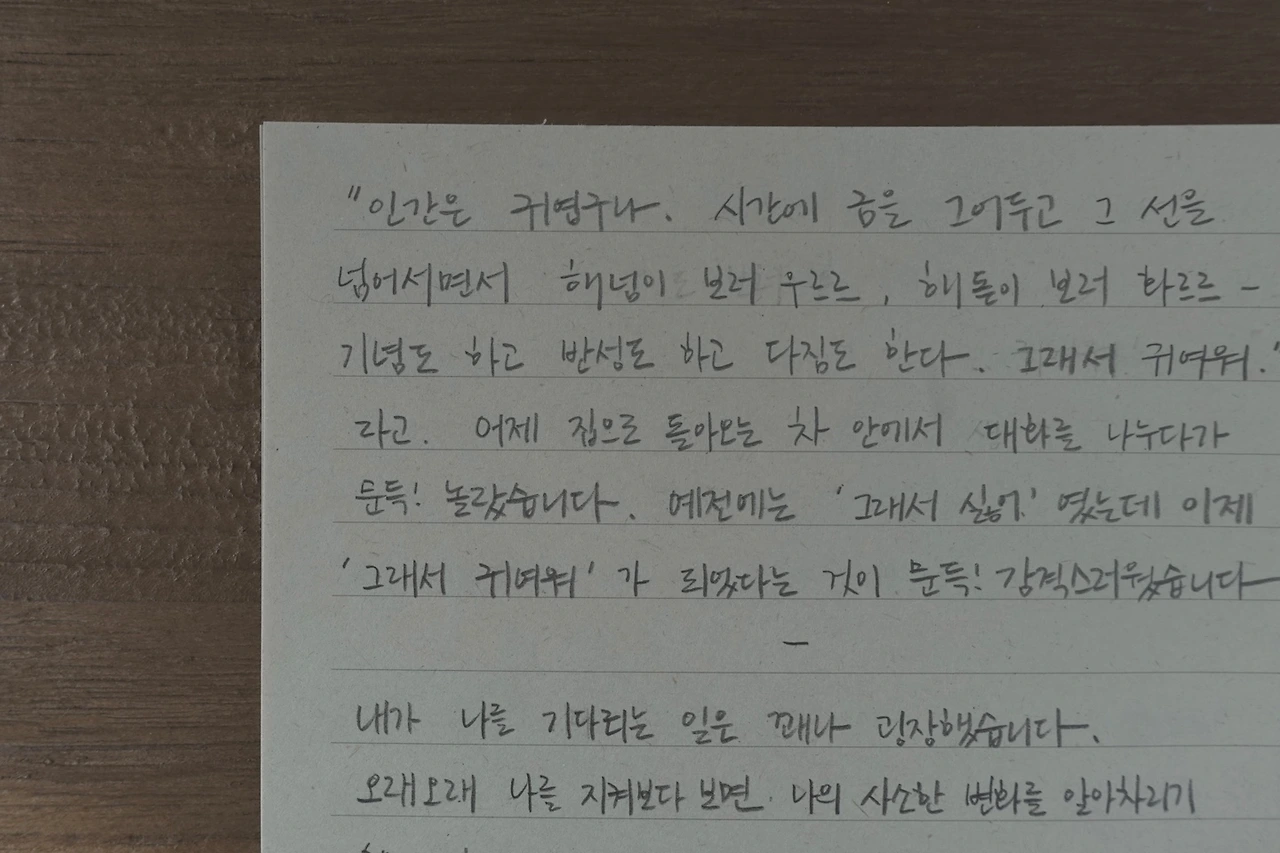 "인간은 귀엽구나. 시간에 금을 그어두고 그 선을
넘어서면서 해넘이 보러 우르르, 해돋이 보러 화르르 -
기념도 하고 반성도 하고 다짐도 한다. 그래서 귀여워.'
라고. 어제 집으로 돌아오는 차 안에서 대화를 나누다가
문득! 놀랐습니다. 예전에는 '그래서 싫어!' 였는데 이제
'그래서 귀여워' 가 되었다는 것이 문득! 감격스러웠습니다
-
내가 나를 기다리는 일은 꽤나 굉장했습니다.
오래오래 나를 지켜보다 보면 나의 사소한 변화를 알아차리기